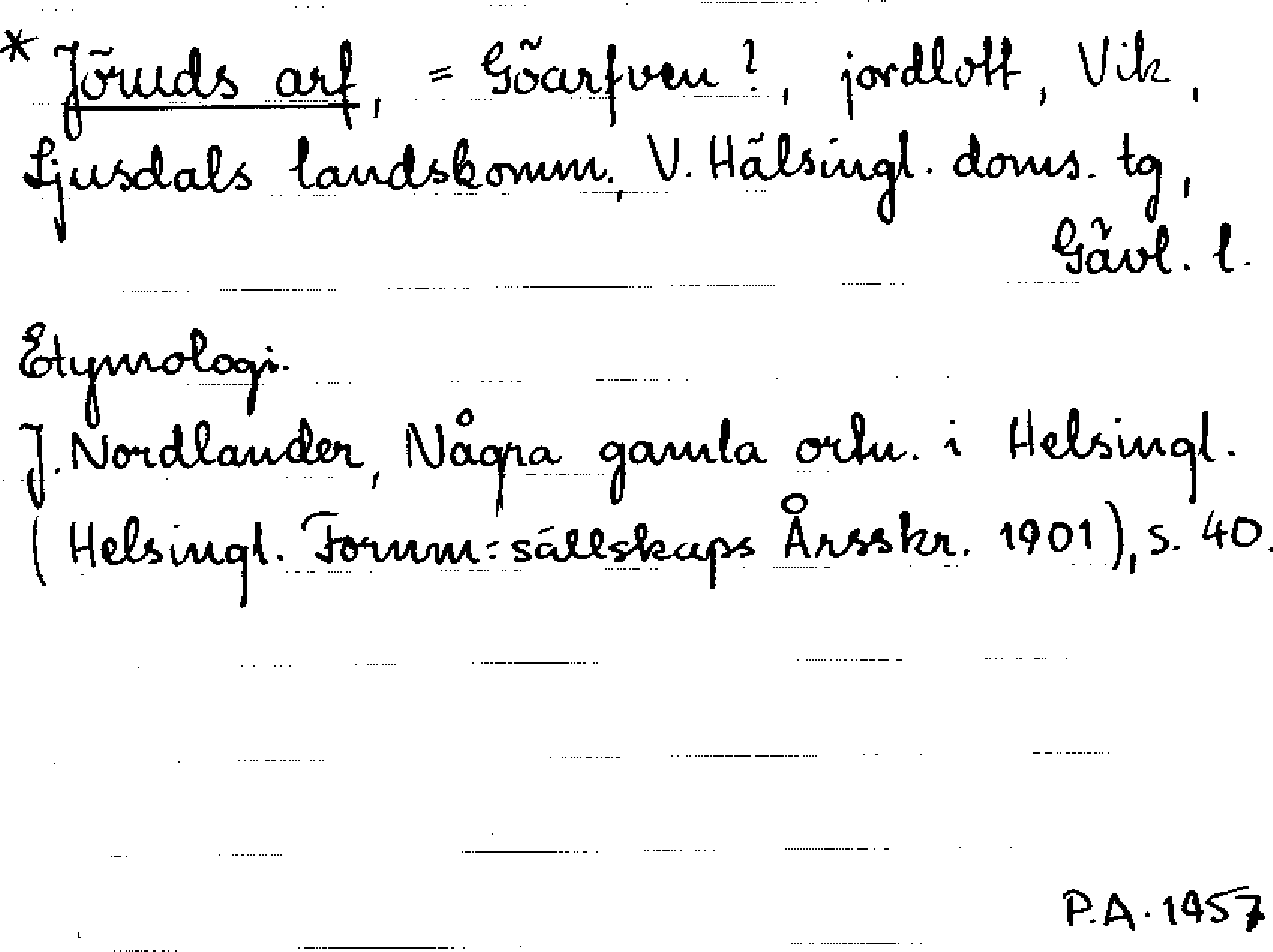 * Jöruds arf, = Göarfven?, jordlott, Vik,
Ljusdals landskomm., V. Hälsingl. doms. tg,
Gävl. l.
Etymologi.
J. Nordlander, Några gamla ortn. i Helsingl.
(Helsingl. Fornm:sällskaps Årsskr. 1901), s. 40.
P.A. 1957